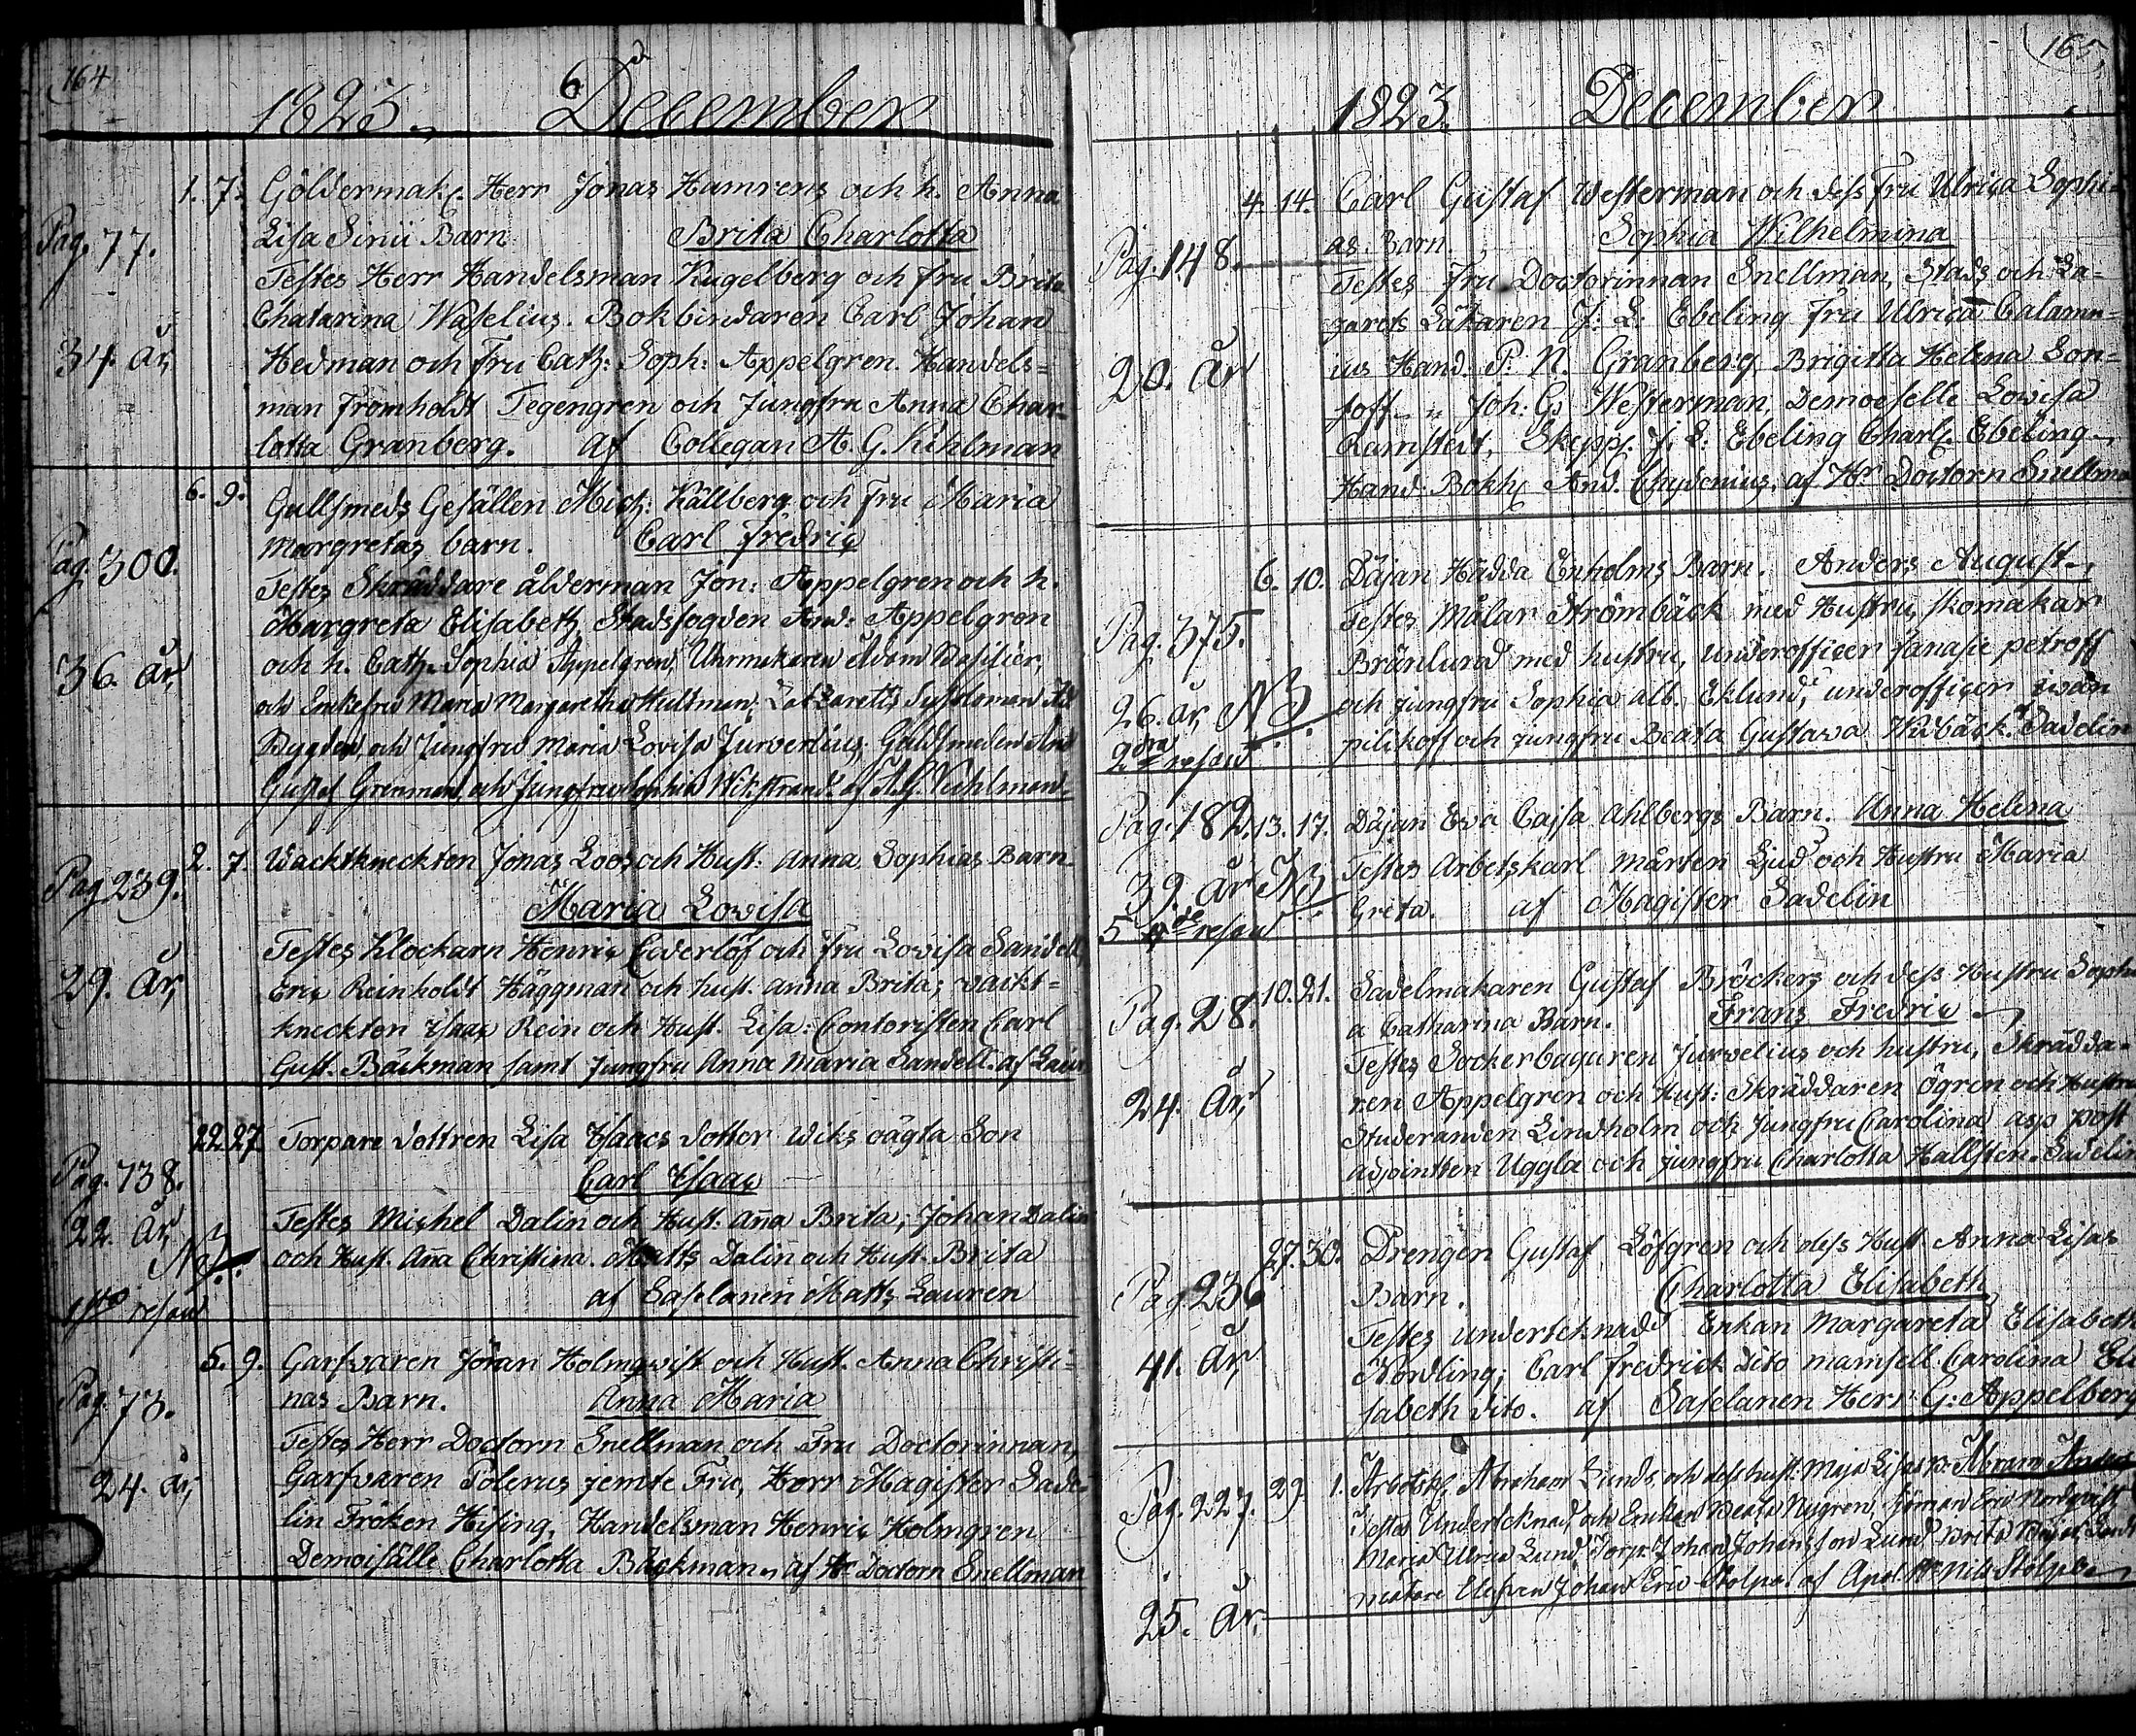 164
1823. December
1. 7. Göldermak. Herr Jonas Hamrens och h. Anna
Lisa Sinii Barn. Brita Charlotta
Pag. 77.
Testes Herr Handelsman Kugelberg och fru Brita
Chatarina Waselius. Bokbindaren Carl Johan
34. år,
Hedman och Fru Cath: Soph: Appelgren. Handels=
man Fromholdt Tegengren och Jungfru Anna Char-
lotta Granberg. af Collegan A. G. Kihlman
6. 9. Gullsmeds Gesällen Mich: Källberg och Fru Maria
Margretas barn. Carl Fredric
Pag. 300.
Testes Skräddare ålderman Jon: Appelgren och h.
Margreta Elisabeth, Stadsfogden And: Appelgren
36. år,
och h. Cath. Sophia Appelgren, Uhrmakaren Adam
och Enkefru Maria Margaretha Hultman; Lazaretts Syssloman
och Jungfru Maria Lovisa Jurvelius; Guldsmeden And
Gustaf Grenman, och Jungfru Sophia Wikstrand. af A.G. Kihlman
2. 7. Wachtkneckten Jonas Loos och Hust: Anna Sophias Barn
Pag. 239.
Maria Lovisa
Testes Klockarn Henric Cederlöf och Fru Lovisa Sandell,
29. år,
Eric Reinholdt Häggman och hust. Anna Brita; vackt=
kneckten Isaac Rein och Hust. Lisa: Contoristen Carl
Gust. Bäckman samt jungfru Anna Maria Sandell. af Laur
22. 27 Torpare dottren Lisa Isaacs dotter Wiks oägta Son
Pag. 738.
Carl Isaac
22. år,
Testes Michel Dalin och Hust: Aña Brita; Johan Dalin
NB.
och Hust. Aña Christina. Matts Dalin och Hust. Brita
1sta resan
af Caplanen Matts Lauren
5. 9. Garfvaren Jöran Holmqvist och Hust. Anna Christi=
Pag. 73.
nas Barn. Anna Maria
Testes Herr Doctorn Snellman och Fru Doctorinnan,
24. år,
Garfvaren Polerus jemte Fru, Herr Magister Sade-
lin Fröken Hising, Handelsman Henric Holmgren
Demoisälle Charlotta Bäckman, af Hr Doctorn Snellman
165.
1823. December
4. 14. Carl Gustaf Westerman och dess Fru Ulrica Sophi-
as Barn Sophia Wilhelmina
Pag. 148.
Testes Fru Doctorinnan Snellman, Stads och La-
zarets Läkaren J: L: Ebeling Fru Ulrica Calamn-
20. år
ius Hand. P: N. Granberg, Brigitta Helena Son-
hoff Joh: G: Westerman, Demoeselle Lowisa
Ramstedt, Skepp. J. L: Ebeling Charl. Ebeling
Hand. Bokh. And. Chydenius, af Hr Doctorn Snellman
6. 10. Däjan Hädda Enholms Barn. Anders August.
Testes Målar Strömbäck med Hustru, skomakar
Pag. 375.
Brünlund med hustru, underofficer fanasie petroff
26. år NB
och jungfru Sophia alb. Eklund; underofficer iwan
2dra resan
pilikoff och jungfru Beata Gustava Widbäck. Sadelin
Pag. 182.
13. 17. Däjan Eva Cajsa Ahlbergs Barn. Anna Helena
39. år NB
Testes Arbetskarl Mårten Ljud och Hustru Maria
Greta. af Magister Sadelin
5 resan
10. 21. Sadelmakaren Gustaf Bröckers och dess Hustru Sophi
Pag. 28.
a Catharina Barn. Frans Fredric
Testes Sockerbagaren Jurvelius och hustru, Skrädda=
24. år,
ren Appelgren och Hust: Skräddaren Ögren och Hustru
Studeranden Lindholm och Jungfru Carolina asp post
adjointten Uggla och jungfru Charlotta Hallsten. Sadelin
27. 30. Drengen Gustaf Löfgren och dess Hust Anna Lisas
Pag. 236
Barn. Charlotta Elisabeth
Testes undertcknad Enkan Margareta Elisabeth
41. år,
Nordling; Carl Fredrick dito mamsell Carolina Eli
sabeth dito. af Caselanen Herr G: Appelberg
29. 1. Arbetsk. Abraham Lunds och dess hust. Maja Lisas b. Abram Anders
Pag. 227.
Testes Undertcknad och Enckan Beata Nygren, Eric Nordqvist
Maria Ulrica Lund, Torp. Johan Johansson Lund Brita
mätare Elefven Johan Eric Stolpe. af Apol. Hr Nils Stolpe
25. år,